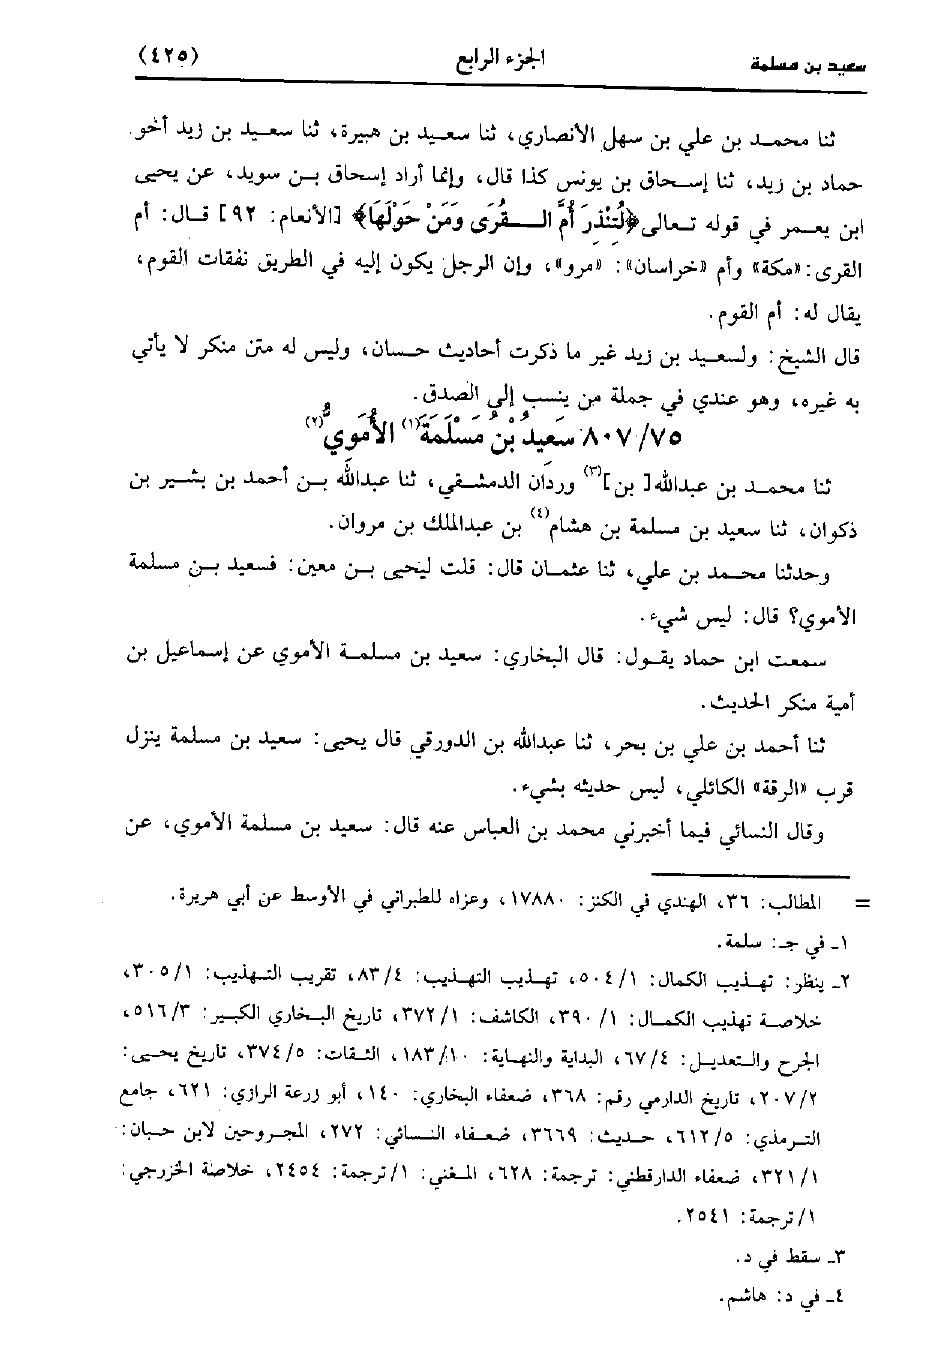 سعيد بن مسلمة الجزء الرابع (٤٢٥)
ثنا محمد بن علي بن سهل الأنصاري، ثنا سعيد بن هبيرة، ثنا سعيد بن زيد أخو
حماد بن زيد، ثنا إسحاق بن يونس كذا قال، وإنما أراد إسحاق بن سويد، عن يحيى
ابن يعمر في قوله تعالى ﴿لِّتُنْذِرَ أُمَّ الْقُرَى وَمَنْ حَوْلَهَا﴾ [الأنعام: ٩٢] قال: أم
القرى: «مكة» وأم «خراسان»: «مرو»، وإن الرجل يكون إليه في الطريق نفقات القوم،
يقال له: أم القوم.
قال الشيخ: ولسعيد بن زيد غير ما ذكرت أحاديث حسان، وليس له متن منكر لا يأتي
به غيره، وهو عندي في جملة من ينسب إلى الصدق.
٨٠٧/٧٥ سَعِيدُ بْنُ مَسْلَمَةَ(١) الأُمَوِيُّ(٢)
ثنا محمد بن عبدالله [بن](٣) وردان الدمشقي، ثنا عبدالله بن أحمد بن بشير بن
ذكوان، ثنا سعيد بن مسلمة بن هشام(٤) بن عبدالملك بن مروان.
وحدثنا محمد بن علي، ثنا عثمان قال: قلت ليحيى بن معين: فسعيد بن مسلمة
الأموي؟ قال: ليس شيء.
سمعت ابن حماد يقول: قال البخاري: سعيد بن مسلمة الأموي عن إسماعيل بن
أمية منكر الحديث.
ثنا أحمد بن علي بن بحر، ثنا عبدالله بن الدورقي قال يحيى: سعيد بن مسلمة ينزل
قرب «الرقة» الكائلي، ليس حديثه بشيء.
وقال النسائي فيما أخبرني محمد بن العباس عنه قال: سعيد بن مسلمة الأموي، عن
= المطالب: ٣٦، الهندي في الكنز: ١٧٨٨٠، وعزاه للطبراني في الأوسط عن أبي هريرة.
١ـ في جـ: سلمة.
٢ـ ينظر: تهذيب الكمال: ٥٠٤/١، تهذيب التهذيب: ٨٣/٤، تقريب التهذيب: ٣٠٥/١،
خلاصة تهذيب الكمال: ٣٩٠/١، الكاشف: ٣٧٢/١، تاريخ البخاري الكبير: ٥١٦/٣،
الجرح والتعديل: ٦٧/٤، البداية والنهاية: ١٨٣/١٠، الثقات: ٣٧٤/٥، تاريخ يحيى:
٢٠٧/٢، تاريخ الدارمي رقم: ٣٦٨، ضعفاء البخاري: ١٤٠، أبو زرعة الرازي: ٦٢١، جامع
الترمذي: ٦١٢/٥، حديث: ٣٦٦٩، ضعفاء النسائي: ٢٧٢، المجروحين لابن حبان:
٣٢١/١، ضعفاء الدارقطني: ترجمة: ٦٢٨، المغني: ١/ترجمة: ٢٤٥٤، خلاصة الخزرجي:
١/ترجمة: ٢٥٤١.
٣ـ سقط في د.
٤ـ في د: هاشم.